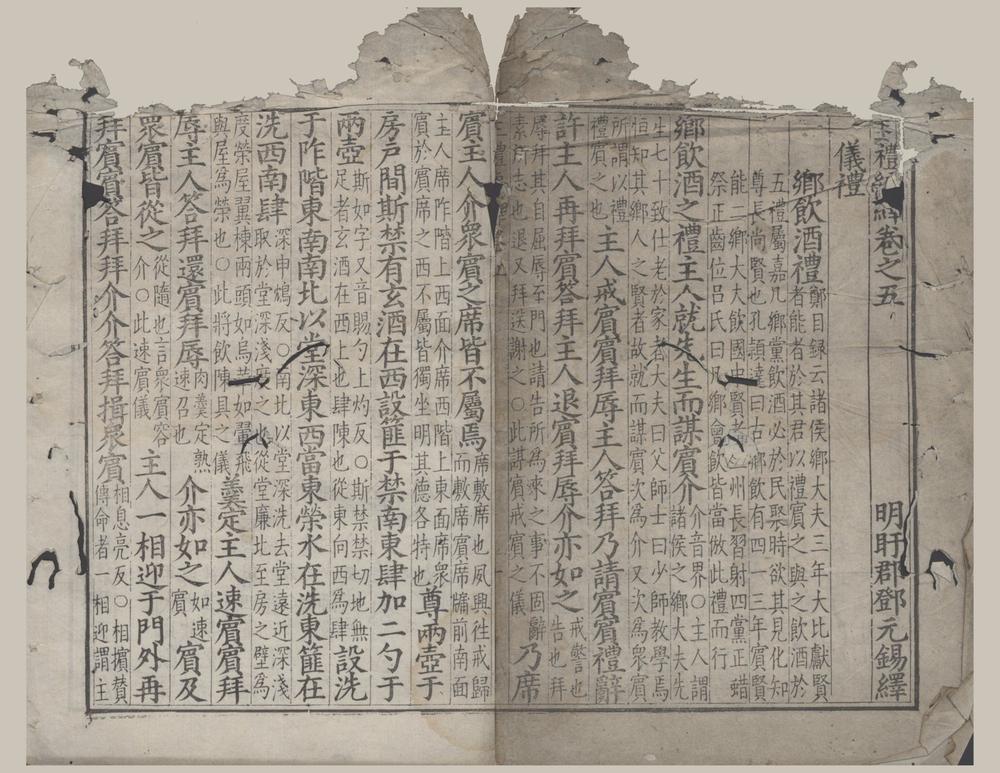 禮編繹卷之五 明盱郡鄧元錫繹
儀禮
鄉飲酒禮鄭目録云諸侯鄉大夫三年大比獻賢
者能者於其君以禮賓之與之飲酒於
五禮屬嘉凡鄉黨飲酒必於民聚時欲其見化知
尊長尚賢也孔穎達曰古鄉飲有四一三年賓賢
能二鄉大夫飲國中賢者三州長習射四黨正蜡
祭正齒位吕氏曰凡鄉會飲皆當倣此禮而行
鄉飲酒之禮主人就先生而謀賓介介音界○主人謂
諸侯之鄉大夫先
生七十致仕老於家者大夫曰父師士曰少師教學焉
恒知其鄉人之賢者故就而謀賓次為介又次為衆賓
所謂以禮
禮賓之也
主人戒賓賓拜辱主人答拜乃請賓賓禮辭
許主人再拜賓答拜主人退賓拜辱介亦如之戒警也
告也拜
辱拜其自屈辱至門也請告所為來之事不固辭
素所有志也退又拜送謝之○此謀賓戒賓之儀
乃席
賓主人介衆賓之席皆不屬焉席敷席也夙興往戒歸
而敷席賓席牖前南面
主人席阼階上西面介席西階上東面席衆
賓於賓席之西不屬皆獨坐明其德各特也
尊兩壺于
房戶間斯禁有玄酒在西設篚于禁南東肆加二勺于
兩壺斯如字又音賜勺上灼反○斯禁禁切地無
足者玄酒在西上也肆陳也從東向西為肆
設洗
于阼階東南南北以堂深東西當東榮水在洗東篚在
洗西南肆深申鴆反○南北以堂深洗去堂遠近深淺
取於堂深淺度之也從堂廉北至房之壁為
度榮屋翼棟兩頭如烏革如翬飛
與屋為榮也○此將飲陳具之儀
羹定主人速賓賓拜
辱主人答拜還賓拜辱肉羹定熟
速召也
介亦如之如速
賓
賓及
衆賓皆從之從隨也言衆賓容
介○此速賓儀
主人一相迎于門外再
拜賓賓答拜拜介介答拜揖衆賓相息亮反○相擯賛
傳命者一相迎謂主